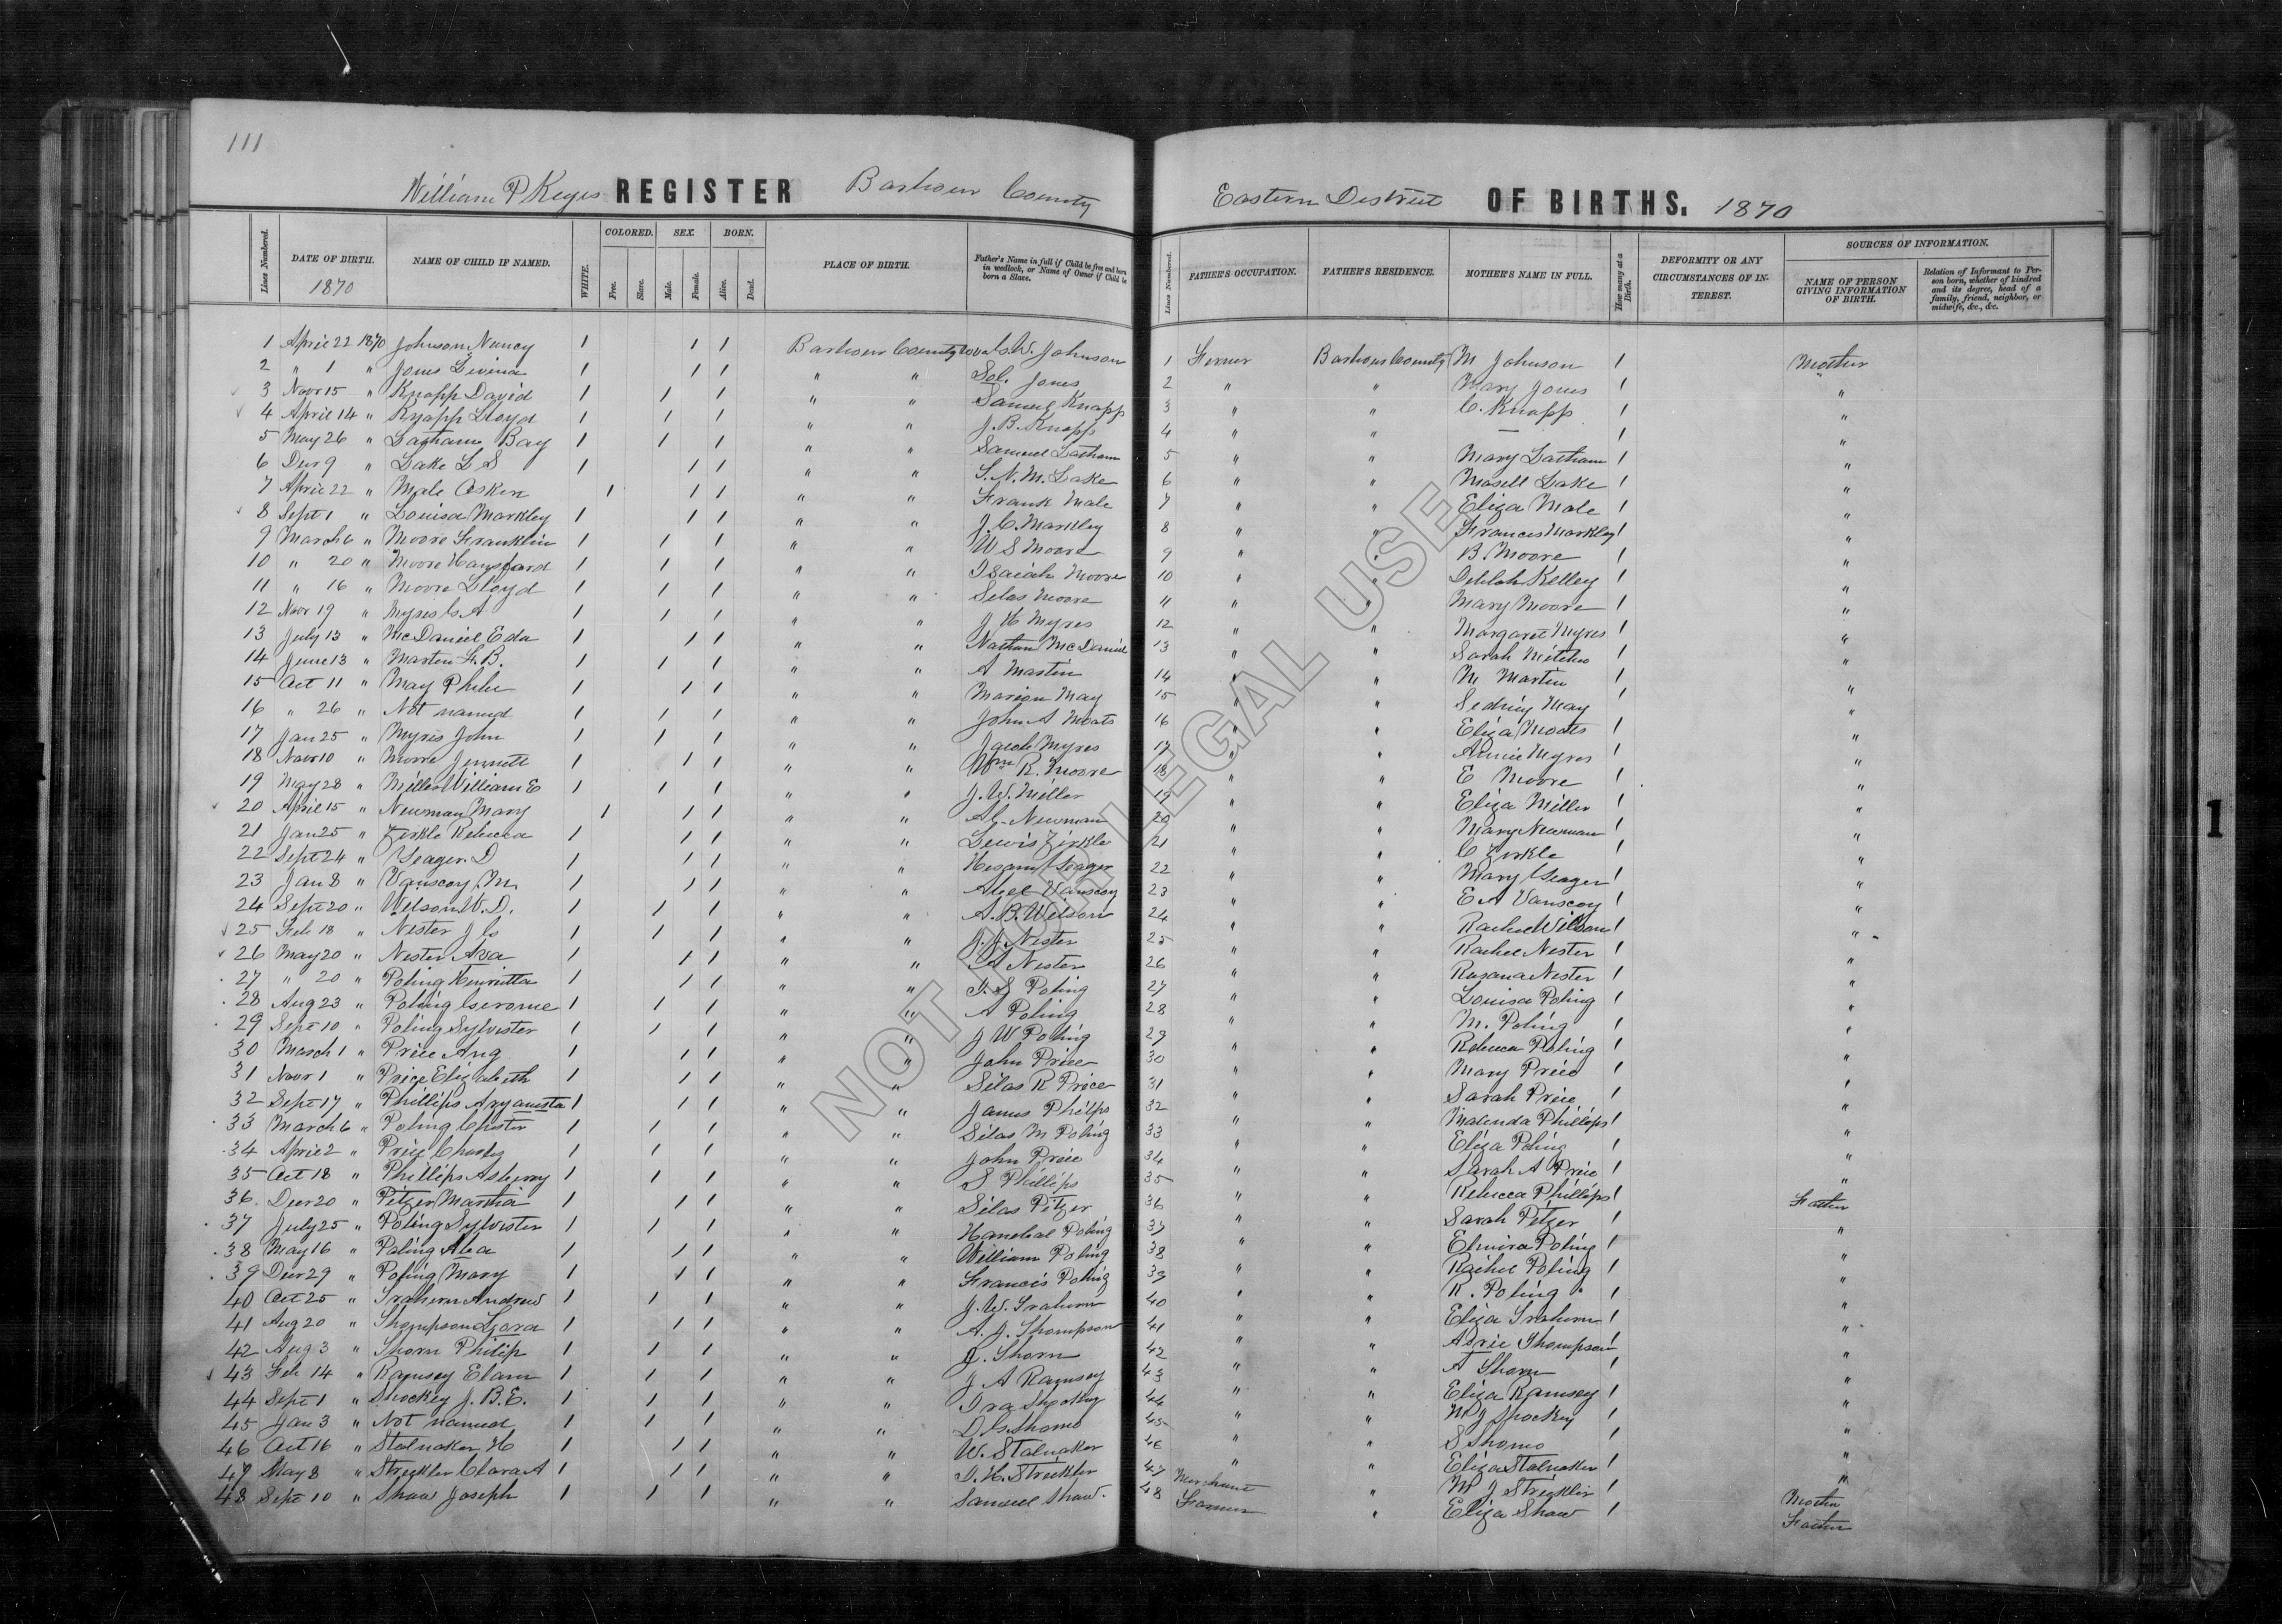 111
William P Keyes REGISTER Barbour County
Eastern District OF BIRTHS. 1870
Lines Numbered. DATE OF BIRTH. 1870 NAME OF CHILD IF NAMED. WHITE. COLORED. Free. Slave. SEX. Male. Female. BORN. Alive. Dead. PLACE OF BIRTH. Father's Name in full if Child be free and born in wedlock, or Name of Owner if Child be born a Slave.
Lines Numbered. FATHER'S OCCUPATION. FATHER'S RESIDENCE. MOTHER'S NAME IN FULL. How many at a Birth. DEFORMITY OR ANY CIRCUMSTANCES OF INTEREST. SOURCES OF INFORMATION. NAME OF PERSON GIVING INFORMATION OF BIRTH. Relation of Informant to Person born, whether of kindred and its degree, head of a family, friend, neighbor, or midwife, &c., &c.
1 April 22 1870 Johnson Nancy 1 1 1 Barbour County Johnson 1 Farmer Barbour County M Johnson 1 Mother
2 " 1 " Jones 1 1 1 " " Sol. Jones 2 " " Mary Jones 1 "
3 Novr 15 " Knapp David 1 1 1 " " Samuel Knapp 3 " " C. Knapp 1 "
4 April 14 " Knapp Lloyd 1 1 1 " " J. B. Knapp 4 " " — 1 "
5 May 26 " Latham Bay 1 1 1 " " Samuel Latham 5 " " Mary Latham 1 "
6 Decr 9 " Lake L S 1 1 1 " " S. N. M. Lake 6 " " Lake 1 "
7 April 22 " Male 1 1 1 " " Frank Male 7 " " Eliza Male 1 "
8 Sept 1 " Louisa Markley 1 1 1 " " J. C. Markley 8 " " Frances Markley 1 "
9 March 6 " Moore Franklin 1 1 1 " " W S Moore 9 " " B. Moore 1 "
10 " 20 " Moore Hansford 1 1 1 " " Isaiah Moore 10 " " Delilah Kelley 1 "
11 " 16 " Moore Lloyd 1 1 1 " " Silas Moore 11 " " Mary Moore 1 "
12 Novr 19 " Myres A 1 1 1 " " J H Myres 12 " " Margaret Myres 1 "
13 July 13 " McDaniel Eda 1 1 1 " " Nathan McDaniel 13 " " Sarah 1 "
14 June 13 " Martin F. B. 1 1 1 " " A Martin 14 " " M Martin 1 "
15 Oct 11 " May 1 1 1 " " Marion May 15 " " May 1 "
16 " 26 " Not named 1 1 1 " " John A Moats 16 " " Eliza Moats 1 "
17 Jan 25 " Myres John 1 1 1 " " Jacob Myres 17 " " Annie Myres 1 "
18 Novr 10 " Moore 1 1 1 " " Wm R. Moore 18 " " E Moore 1 "
19 May 28 " Miller William E 1 1 1 " " J. W. Miller 19 " " Eliza Miller 1 "
20 April 15 " Newman Mary 1 1 1 " " Newman 20 " " Mary Newman 1 "
21 Jan 25 " Zirkle Rebecca 1 1 1 " " Lewis Zirkle 21 " " C Zirkle 1 "
22 Sept 24 " Yeager D 1 1 1 " " Yeager 22 " " Mary Yeager 1 "
23 Jan 8 " Vanscoy M. 1 1 1 " " Vanscoy 23 " " E A Vanscoy 1 "
24 Sept 20 " Wilson W. D. 1 1 1 " " A. B. Wilson 24 " " Rachel Wilson 1 "
25 Feb 18 " Nester J C 1 1 1 " " J. J. Nester 25 " " Rachel Nester 1 "
26 May 20 " Nester 1 1 1 " " A Nester 26 " " Rosana Nester 1 "
27 " 20 " Poling Henrietta 1 1 1 " " Poling 27 " " Louisa Poling 1 "
28 Aug 23 " Poling 1 1 1 " " A Poling 28 " " M. Poling 1 "
29 Sept 10 " Poling Sylvester 1 1 1 " " J W Poling 29 " " Rebecca Poling 1 "
30 March 1 " Price Ang 1 1 1 " " John Price 30 " " Mary Price 1 "
31 Novr 1 " Price Elizabeth 1 1 1 " " Silas R Price 31 " " Sarah Price 1 "
32 Sept 17 " Phillips 1 1 1 " " James Philps 32 " " Malinda Phillips 1 "
33 March 6 " Poling 1 1 1 " " Silas M Poling 33 " " Eliza Poling 1 "
34 April 2 " Price Charley 1 1 1 " " John Price 34 " " Sarah A Price 1 "
35 Oct 18 " Phillips Asberry 1 1 1 " " S Phillips 35 " " Rebecca Phillips 1 "
36 Decr 20 " Pitzer Martha 1 1 1 " " Silas Pitzer 36 " " Sarah Pitzer 1 Father
37 July 25 " Poling Sylvester 1 1 1 " " Poling 37 " " Elmira Poling 1 "
38 May 16 " Poling 1 1 1 " " William Poling 38 " " Rachel Poling 1 "
39 Decr 29 " Poling Mary 1 1 1 " " Francis Poling 39 " " R. Poling 1 "
40 Oct 25 " Andrew 1 1 1 " " J. W. 40 " " Eliza 1 "
41 Aug 20 " Thompson 1 1 1 " " A. J. Thompson 41 " " Thompson 1 "
42 Aug 3 " Thorn Philip 1 1 1 " " J. Thorn 42 " " A Thorn 1 "
43 Feb 14 " Ramsey Elam 1 1 1 " " J A Ramsey 43 " " Eliza Ramsey 1 "
44 Sept 1 " Shockey J. B. E. 1 1 1 " " Ira Shockey 44 " " M J Shockey 1 "
45 Jan 3 " Not named 1 1 1 " " Shomo 45 " " S Shomo 1 "
46 Oct 16 " Stalnaker H 1 1 1 " " W. Stalnaker 46 " " Eliza Stalnaker 1 "
47 May 8 " Strickler Clara A 1 1 1 " " Strickler 47 Merchant " M J Strickler 1 Mother
48 Sept 10 " Shaw Joseph 1 1 1 " " Samuel Shaw. 48 Farmer " Eliza Shaw 1 Father
NOT FOR LEGAL USE
1